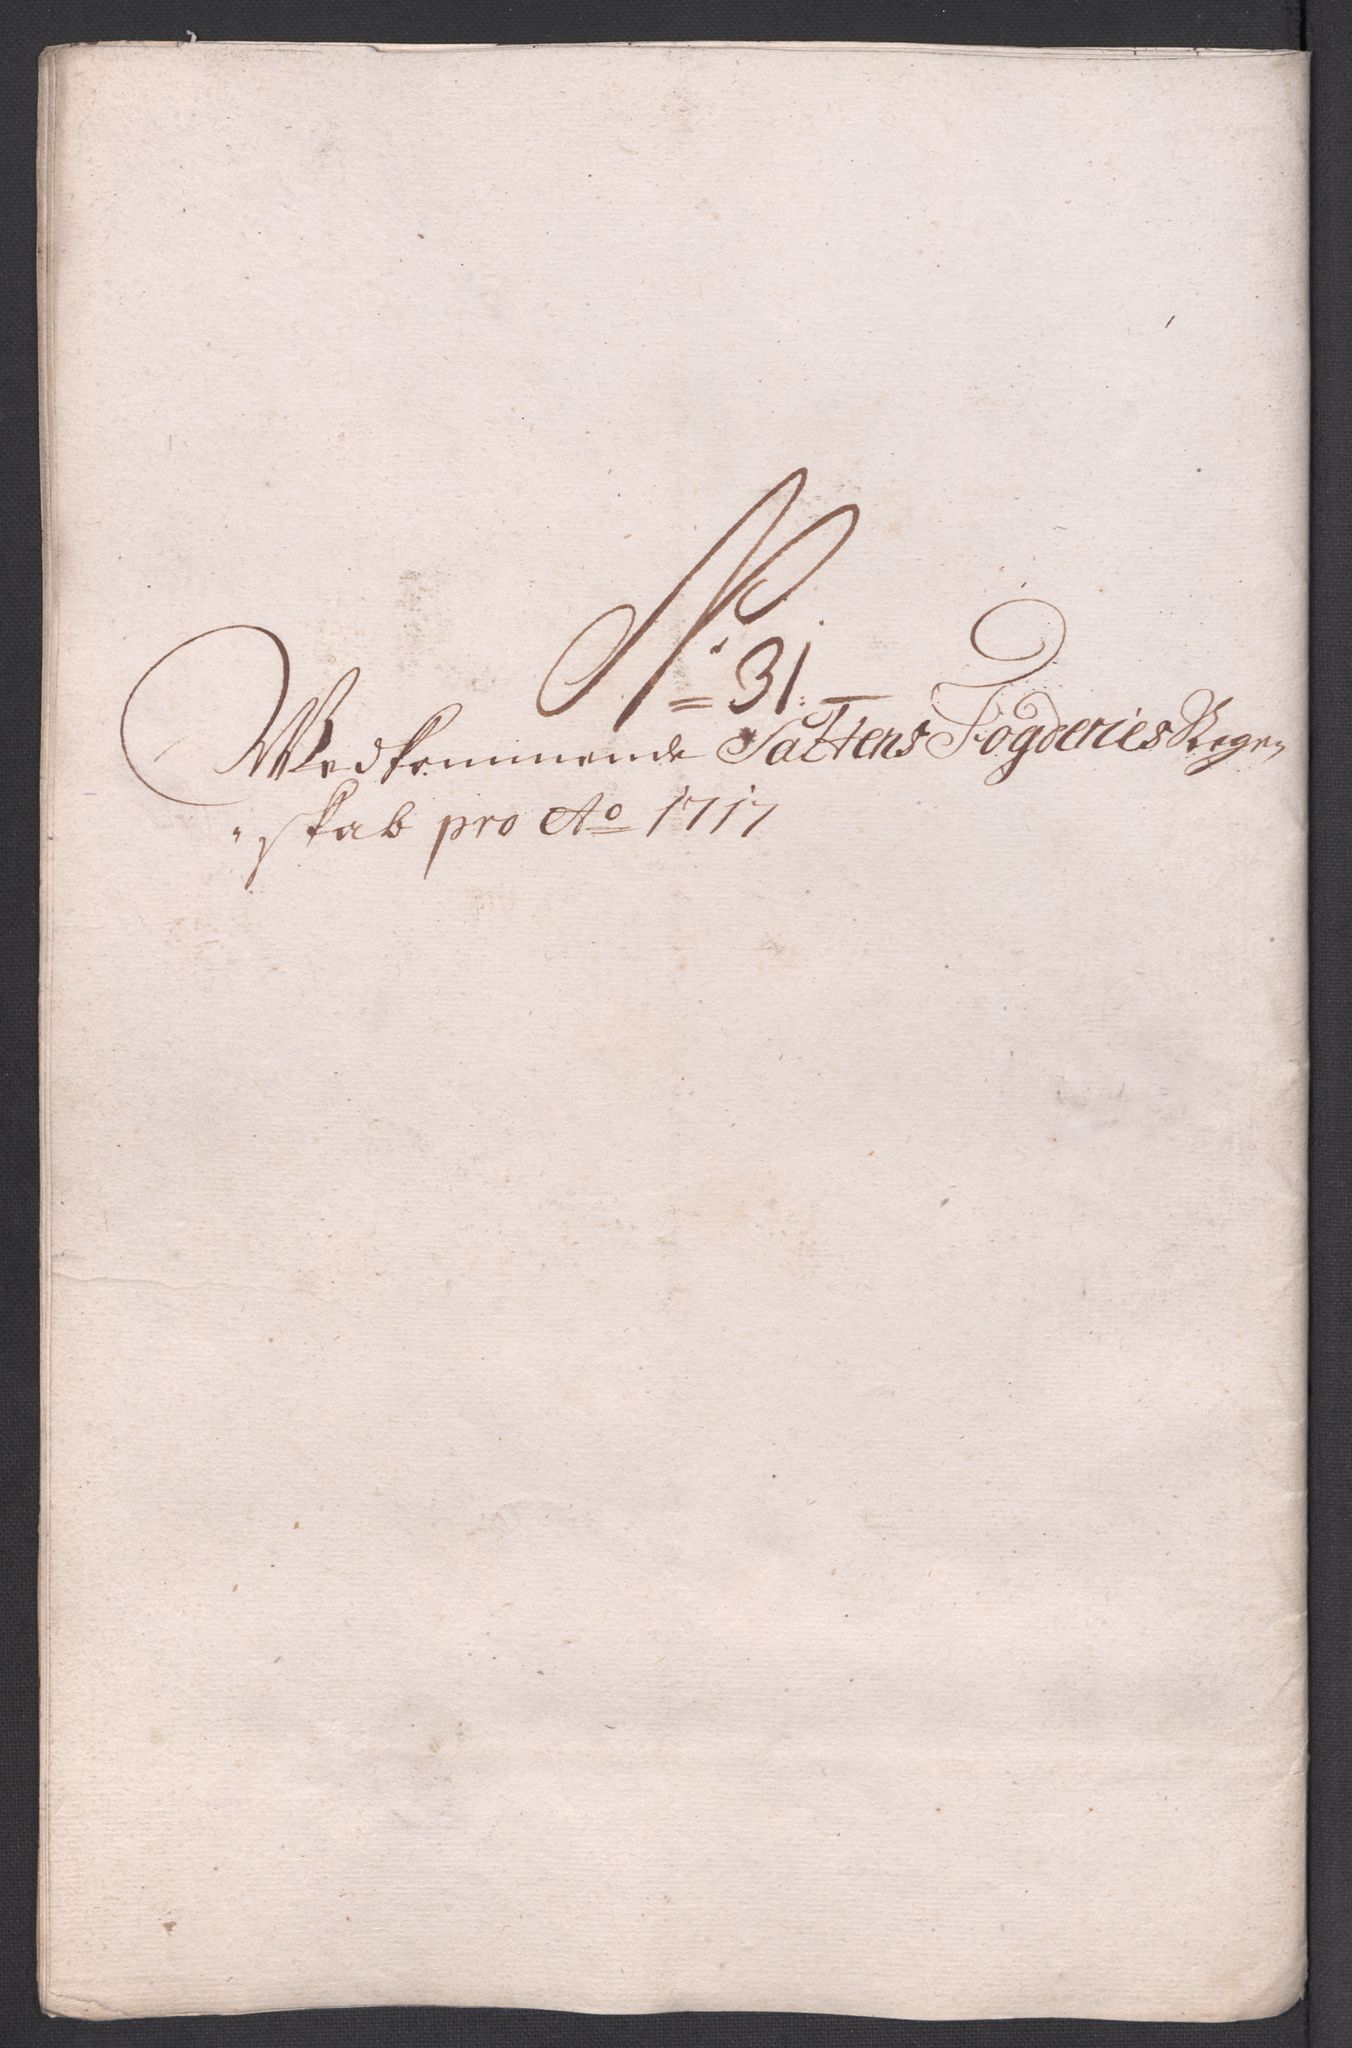 No 31.
Wedkommende Saltens Fogderies Regen
skab pro Ao 1717